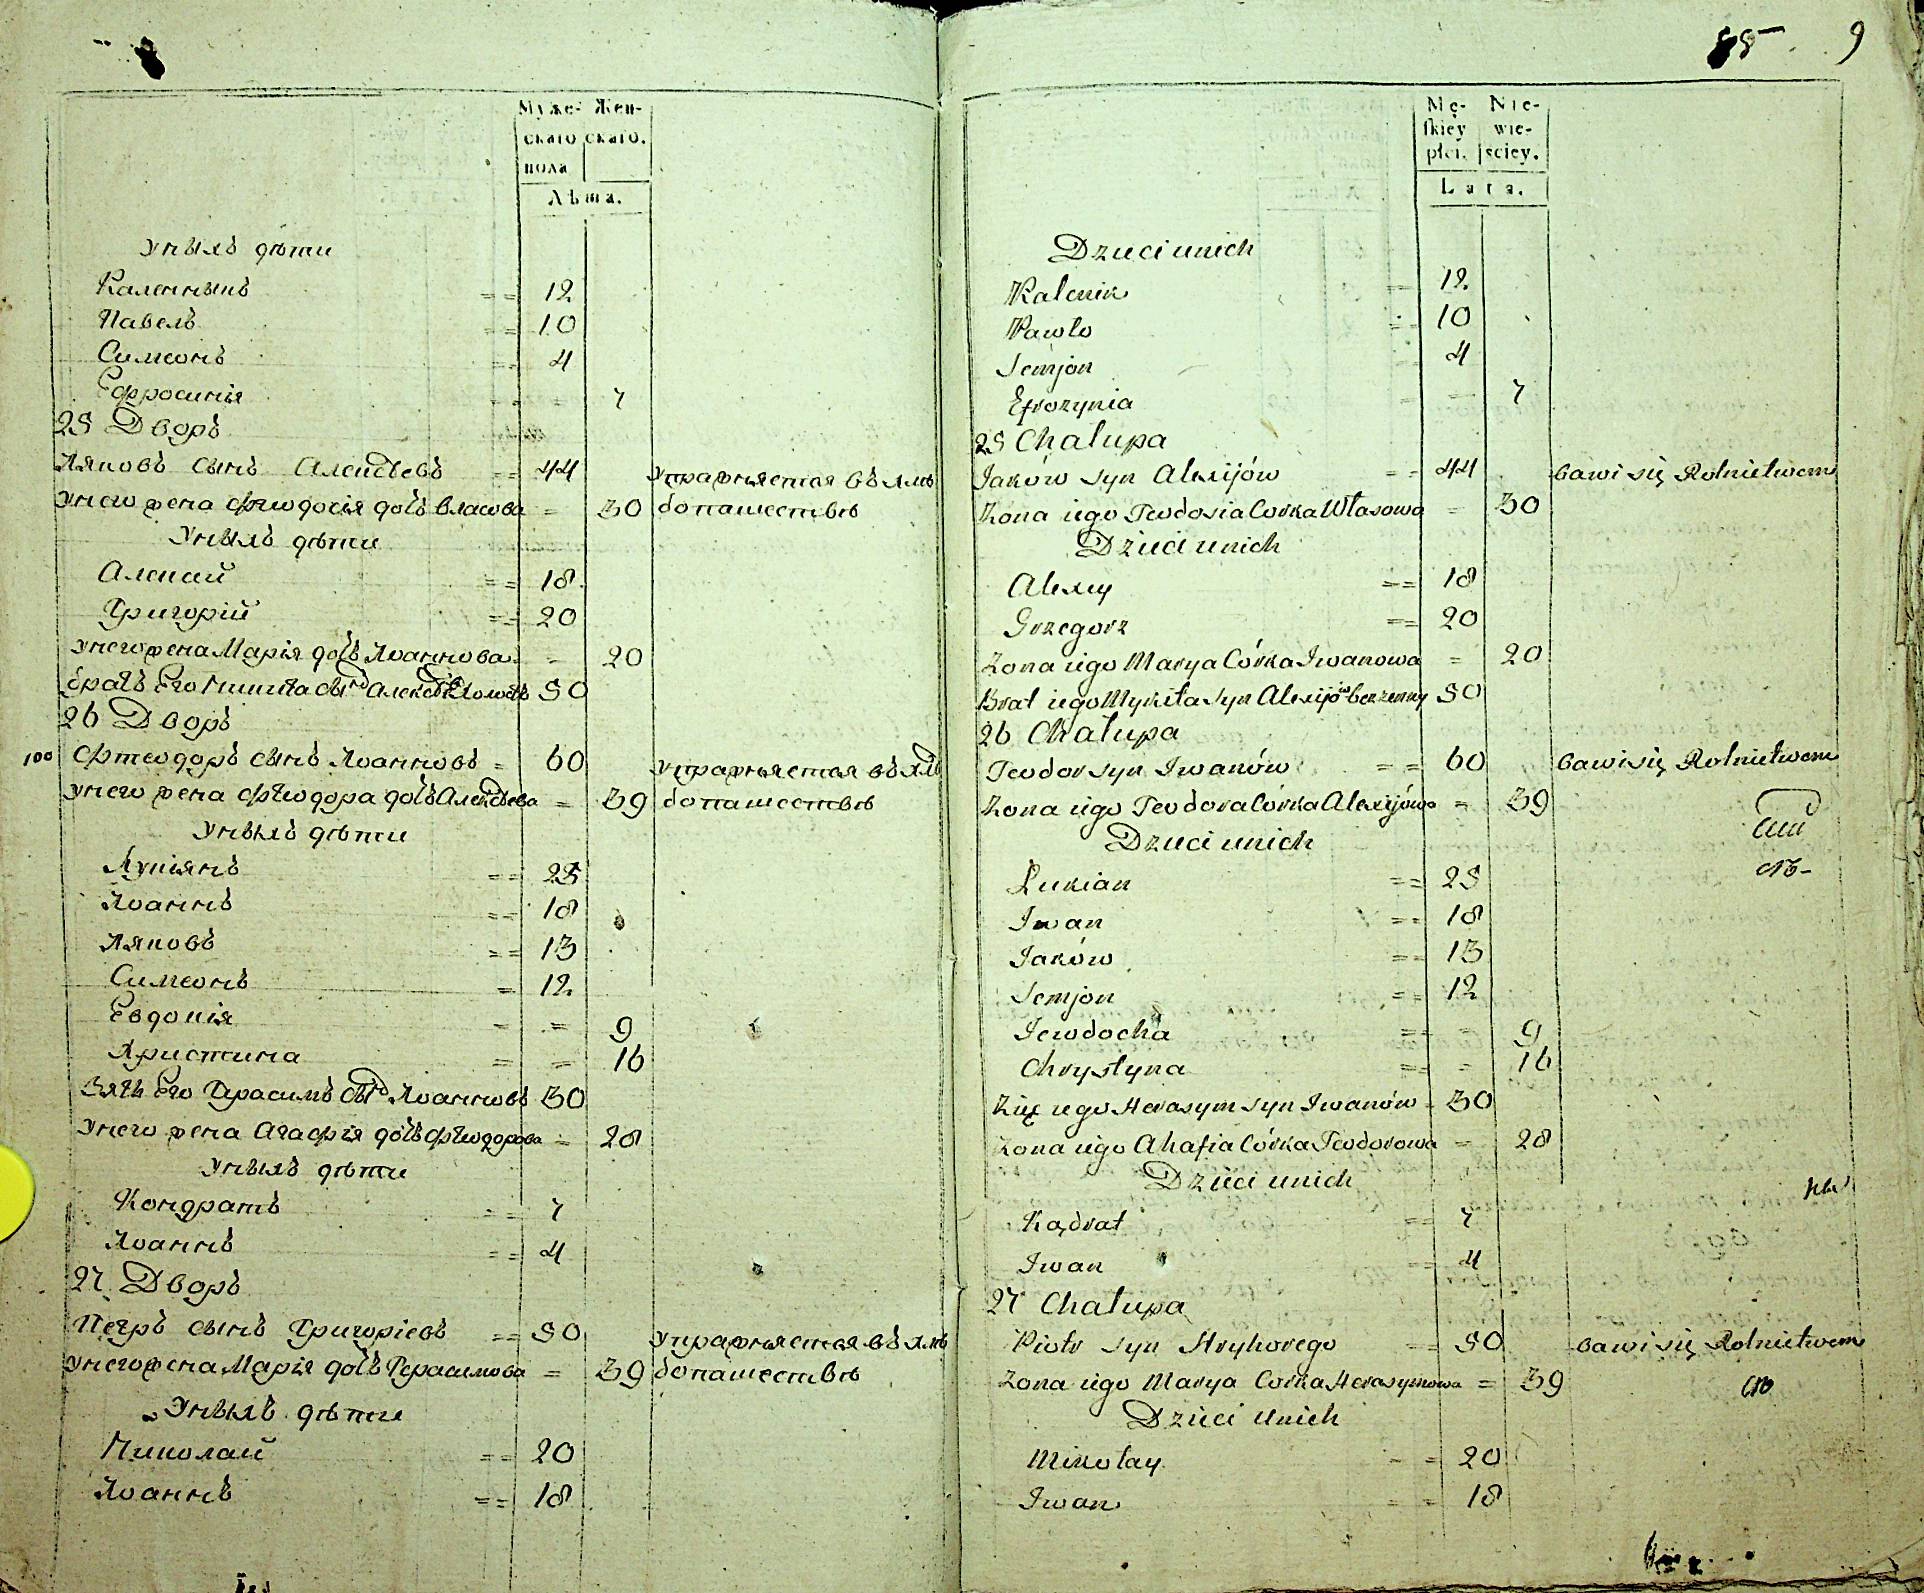 Муже- Жен-
скаго скаго.
пола
Лѣта.
У нихъ дѣти
Каленикъ == 12
Павелъ == 10
Симеонъ == 4
Ефросинія = = 7
25 Дворъ
Яковъ сынъ Алексѣевъ == 44 упражняется въ хлѣ
У него жена Феодосія дочь Власова = 30 бопашествѣ
У нихъ дѣти
Алексѣй == 18
Григорій == 20
У него жена Марія дочь Иоаннова = 20
братъ Его Никита сынъ Алексѣевъ холостъ 50
26 Дворъ
100 Феодоръ сынъ Иоанновъ = 60 упражняется въ хлѣ
У него жена Феодора дочь Алексѣева = 39 бопашествѣ
У нихъ дѣти
Лукіянъ == 25
Иоаннъ == 18
Яковъ == 13
Симеонъ = 12
Евдокія = = 9
Христина = = 16
Зять Его Герасимъ сынъ Иоанновъ 30
У него жена Агафія дочь Феодорова = 28
У нихъ дѣти
Кондратъ == 7
Иоаннъ == 4
27 Дворъ
Петръ сынъ Григоріевъ == 50 упражняется въ хлѣ
У него жена Марія дочь Герасимова = 39 бопашествѣ
У нихъ дѣти
Николай == 20
Иоаннъ == 18
55 9
Mę- Nie-
skiey wie-
płci. sciey.
Lata.
Dzieci u nich
Kalenik == 12
Pawło == 10
Semjon = 4
Efrozynia = = 7
25 Chałupa
Jaków syn Alexijów == 44 bawi się Rolnictwem
Zona iego Teodosia Corka Własowa = 30
Dzieci u nich
Alexiy == 18
Grzegorz == 20
Zona iego Marya Córka Iwanowa = 20
Brat iego Mykita syn Alexijów bezzenny 50
26 Chałupa
Teodor syn Iwanów == 60 bawi się Rolnictwem
Zona iego Teodora Córka Alexijów = 39
Dzieci u nich
Łukian == 25
Iwan == 18
Jaków == 13
Semjon == 12
Jewdocha == = 9
Chrystyna == = 16
Zięć iego Herasym syn Iwanów = 30
Zona iego Ahafia Córka Teodorowa = 28
Dzieci u nich
Kądrat == 7
Iwan == 4
27 Chałupa
Piotr syn Hryhorego == 50 bawi się Rolnictwem
Zona iego Marya Corka Herasymowa = 39
Dzieci u nich
Mikołay = = 20
Iwan = = 18